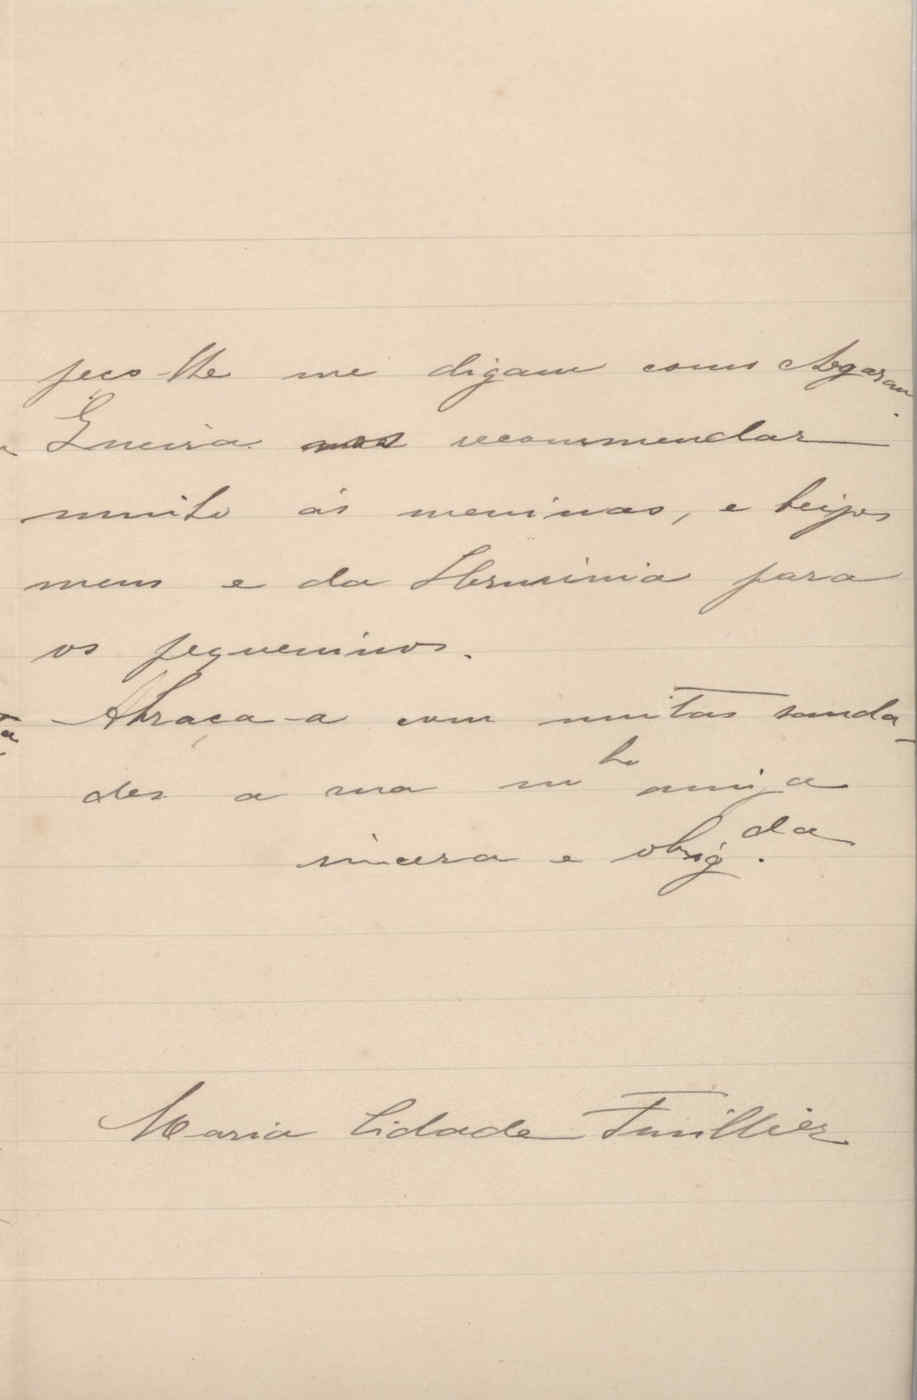 peço-lhe me digam como chegaram.
Queira nos recommendar
muito ás meninas, e beijos
meus e da Herminia para
os pequeninos.
Abraça-a com muitas sauda-
des a sua mto amiga
sincera e obrigda.
Maria Cidade Fuzillier